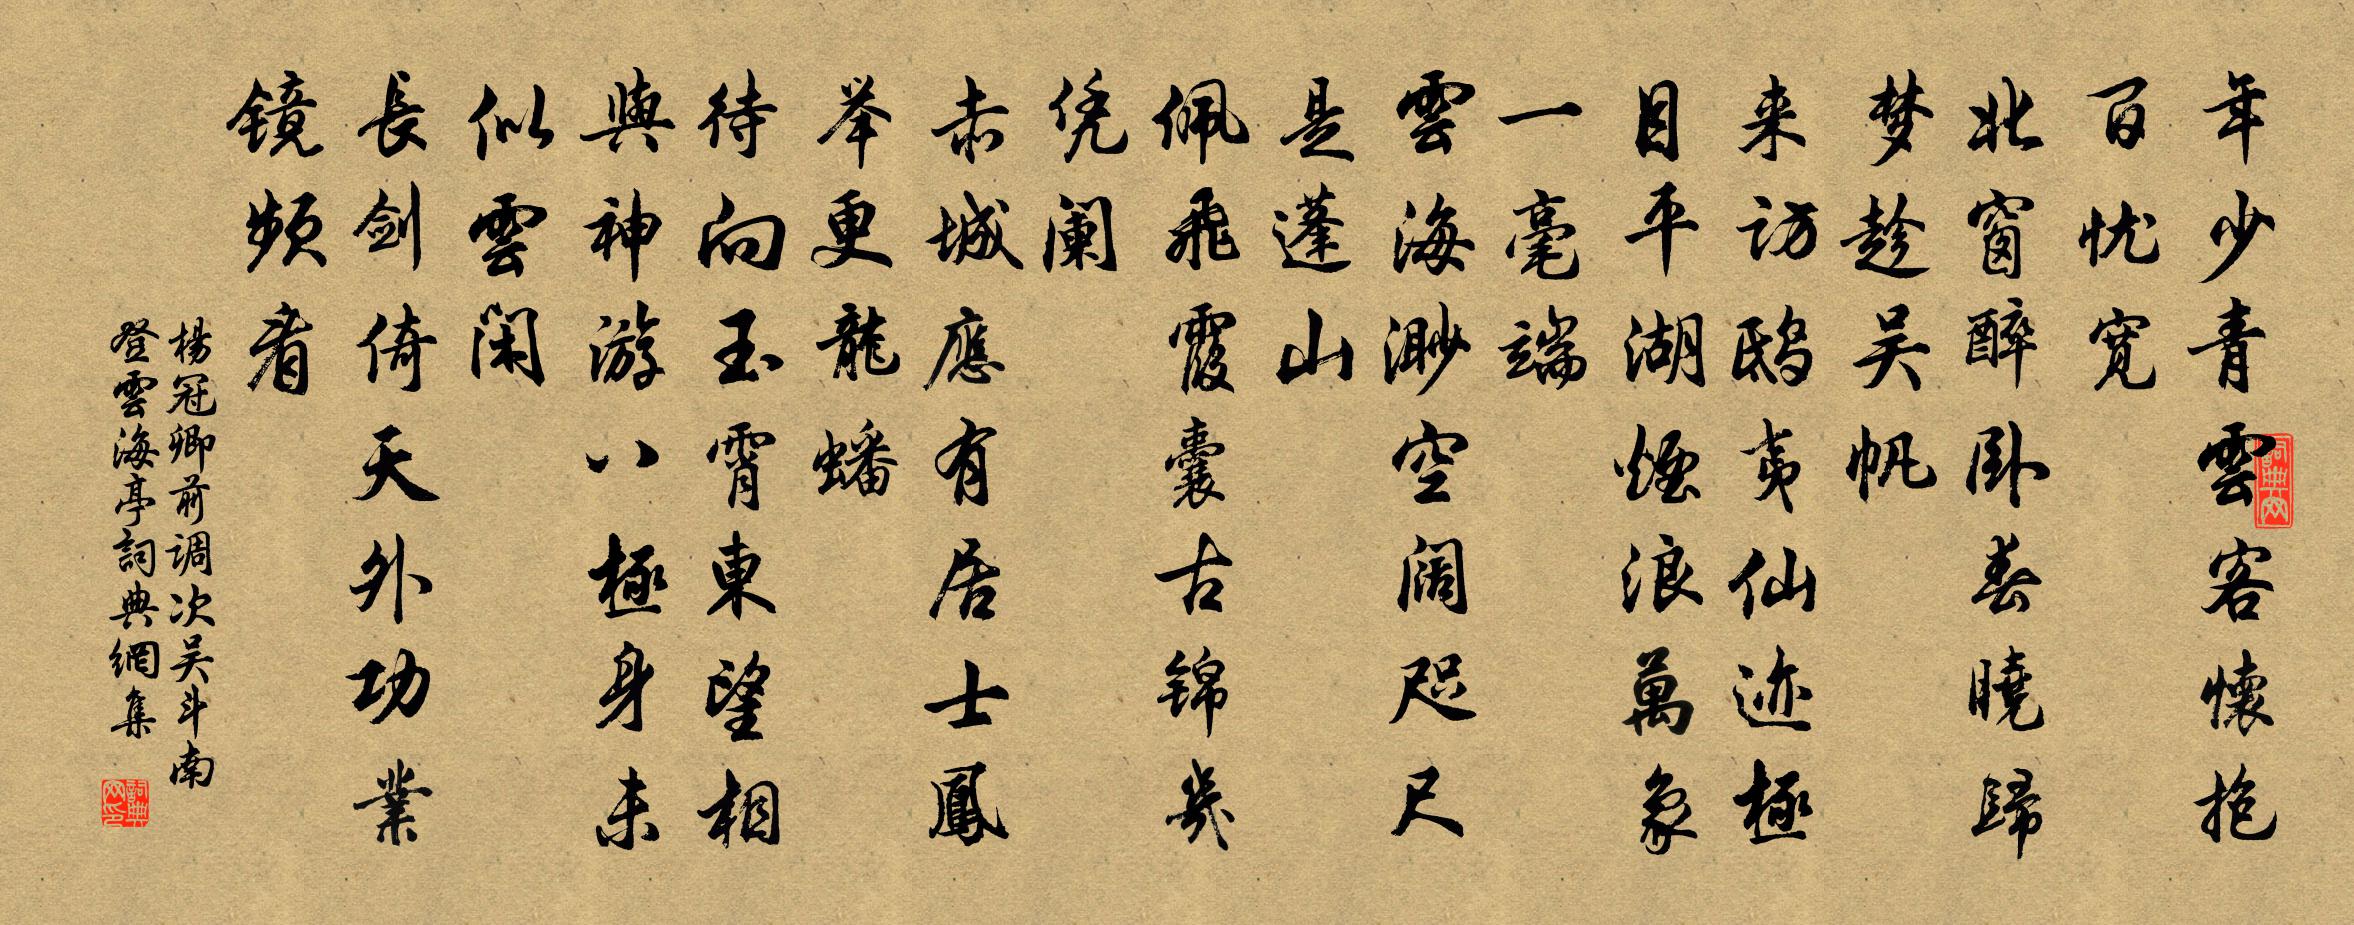 年少青雲客懷抱
百忧寬
北窗醉卧春曉歸
梦趁吴帆
来访鸱夷仙迹極
目平湖煙浪萬象
一毫端
雲海渺空阔咫尺
是蓬山
佩飛霞囊古锦幾
凭阑
赤城應有居士鳳
举更龍蟠
待向玉霄東望相
與神游八極身未
似雲闲
長剑倚天外功業
镜频看
楊冠卿前调次吴斗南
登雲海亭詞典網集
詞典网
詞典网印